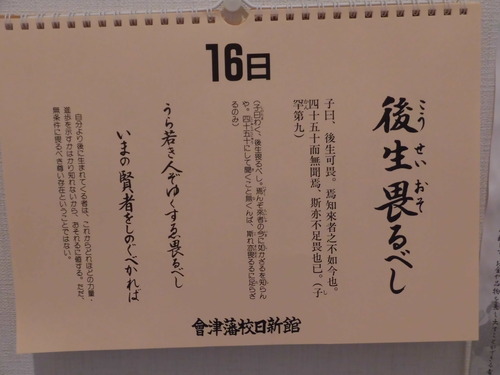 16日
後生畏るべし
こうせいおそ
子曰、後生可畏。焉知來者之不如今也。
四十五十而無聞焉、斯亦不足畏也已。(子
罕第九)
(子曰わく、後生畏るべし。焉んぞ來者の今に如かざるを知らん
や。四十五十にして聞くこと無くんば、斯れ亦畏るるに足らざ
るのみ)
うら若き人ぞゆくすゑ畏るべし
いまの賢者をしのぐべかれば
自分より後に生まれてくる者は、これからどれほどの力量、
進歩を示すかはかり知れないから、おそれるに値する。ただ、
無条件に畏るべき尊い存在ということではない。
會津藩校日新館